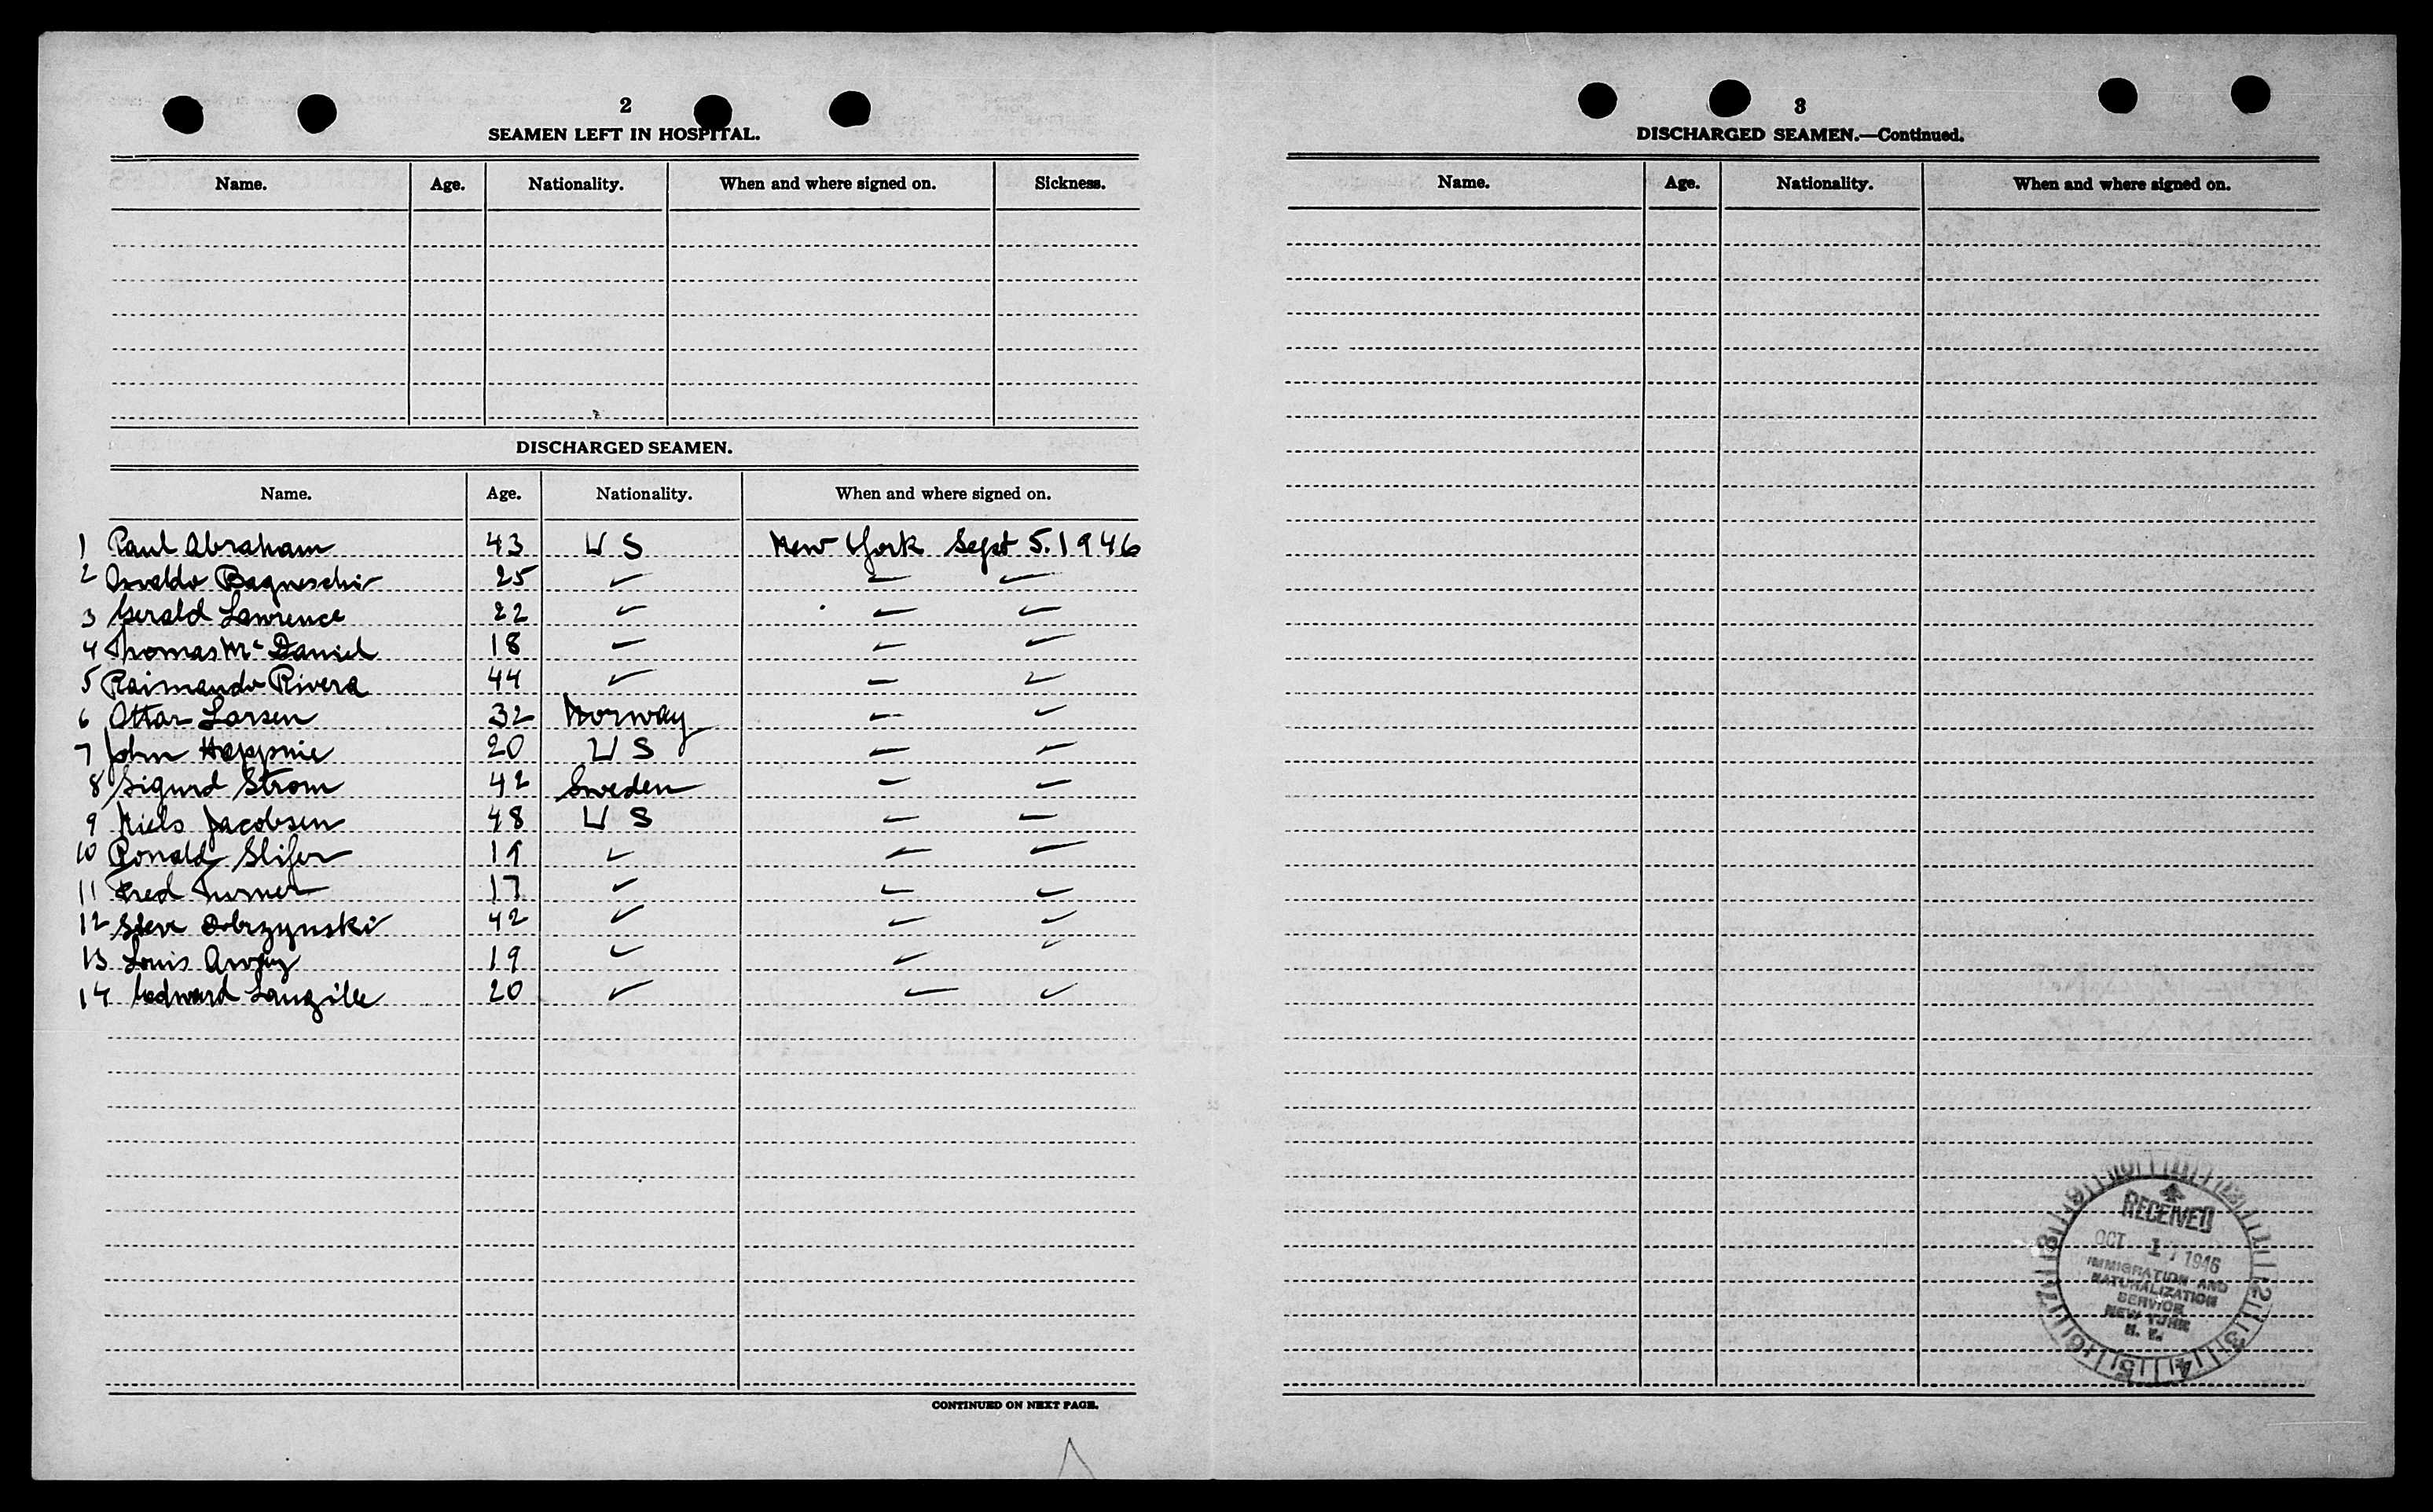 2
SEAMEN LEFT IN HOSPITAL.
Name. Age. Nationality. When and where signed on. Sickness.
DISCHARGED SEAMEN.
Name. Age. Nationality. When and where signed on.
1 Paul Abraham 43 U S New York Sept 5. 1946
2 Osvaldo Bagneschi 25
3 Gerald Lawrence 22
4 Thomas Mc Daniel 18
5 Raimando Rivera 44
6 Ottar Larsen 32 Norway
7 John 20 U S
8 Sigurd Strom 42 Sweden
9 Niels Jacobsen 48 U S
10 Ronald Slifer 19
11 Fred Turner 17
12 Steve Dobrzynski 42
13 Louis 19
14 Edward Langille 20
CONTINUED ON NEXT PAGE.
3
DISCHARGED SEAMEN.—Continued.
Name. Age. Nationality. When and where signed on.
RECEIVED
OCT 1 1946
IMMIGRATION AND
NATURALIZATION
SERVICE
NEW YORK
N. Y.